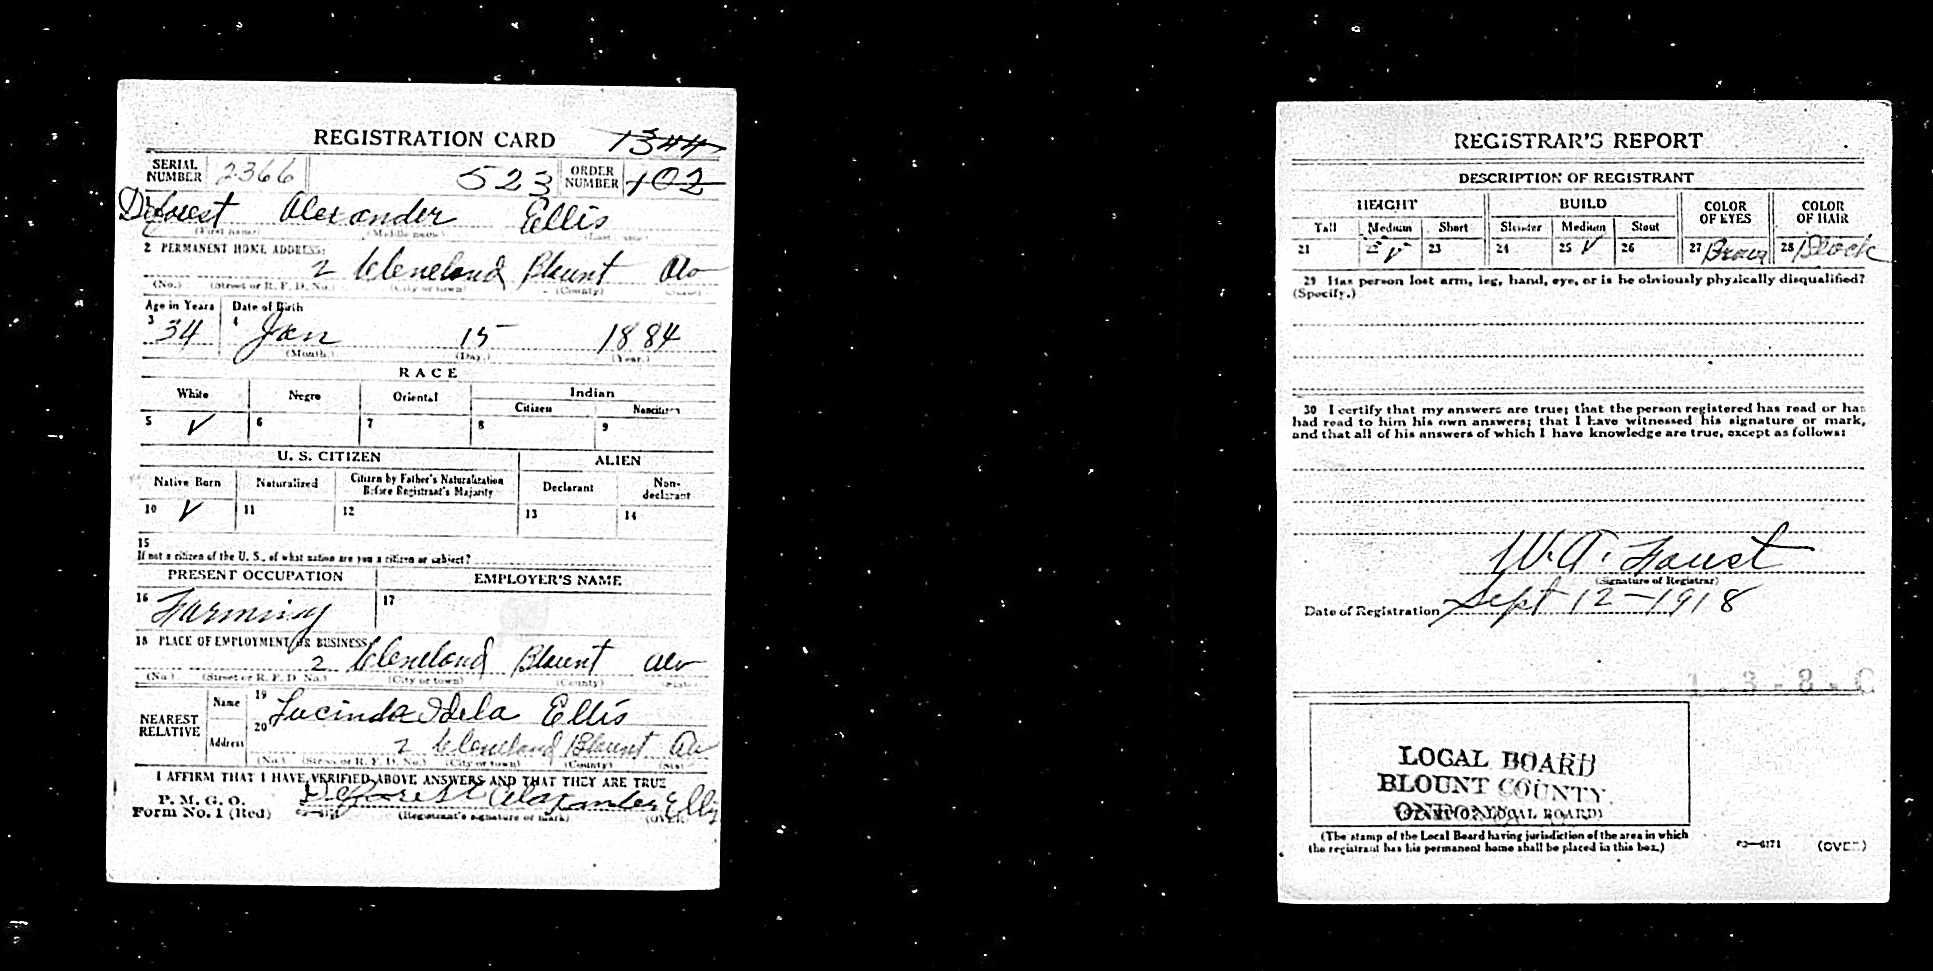 REGISTRATION CARD 1344
SERIAL NUMBER 2366 523 ORDER NUMBER 102
Deforest Alexander Ellis
(First name) (Middle name) (Last name)
2 PERMANENT HOME ADDRESS:
2 Cleveland Blount Ala
(No.) (Street or R. F. D. No.) (City or town) (County) (State)
Age in Years Date of Birth
3 34 4 Jan 15 1884
(Month.) (Day.) (Year.)
RACE
White Negro Oriental Indian
Citizen Noncitizen
5 V 6 7 8 9
U. S. CITIZEN ALIEN
Native Born Naturalized Citizen by Father's Naturalization Before Registrant's Majority Declarant Non-declarant
10 V 11 12 13 14
15
If not a citizen of the U. S., of what nation are you a citizen or subject?
PRESENT OCCUPATION EMPLOYER'S NAME
16 Farming 17
18 PLACE OF EMPLOYMENT OR BUSINESS:
2 Cleveland Blount Ala
(No.) (Street or R. F. D. No.) (City or town) (County) (State)
NEAREST RELATIVE
Name 19 Lucinda Idela Ellis
Address 20 2 Cleveland Blount Ala
(No.) (Street or R. F. D. No.) (City or town) (County) (State)
I AFFIRM THAT I HAVE VERIFIED ABOVE ANSWERS AND THAT THEY ARE TRUE
P. M. G. O.
Form No. 1 (Red) Deforest Alaxander Ellis
(Registrant's signature or mark) (OVER)
REGISTRAR'S REPORT
DESCRIPTION OF REGISTRANT
HEIGHT BUILD COLOR OF EYES COLOR OF HAIR
Tall Medium Short Slender Medium Stout
21 22 V 23 24 25 V 26 27 Brown 28 Black
29 Has person lost arm, leg, hand, eye, or is he obviously physically disqualified?
(Specify.)
30 I certify that my answers are true; that the person registered has read or has
had read to him his own answers; that I have witnessed his signature or mark,
and that all of his answers of which I have knowledge are true, except as follows:
W. A. Faust
(Signature of Registrar)
Date of Registration Sept 12-1918
1-3-8-C
LOCAL BOARD
BLOUNT COUNTY
(STAMP OF LOCAL BOARD)
(The stamp of the Local Board having jurisdiction of the area in which
the registrant has his permanent home shall be placed in this box.)
03—6171 (OVER)